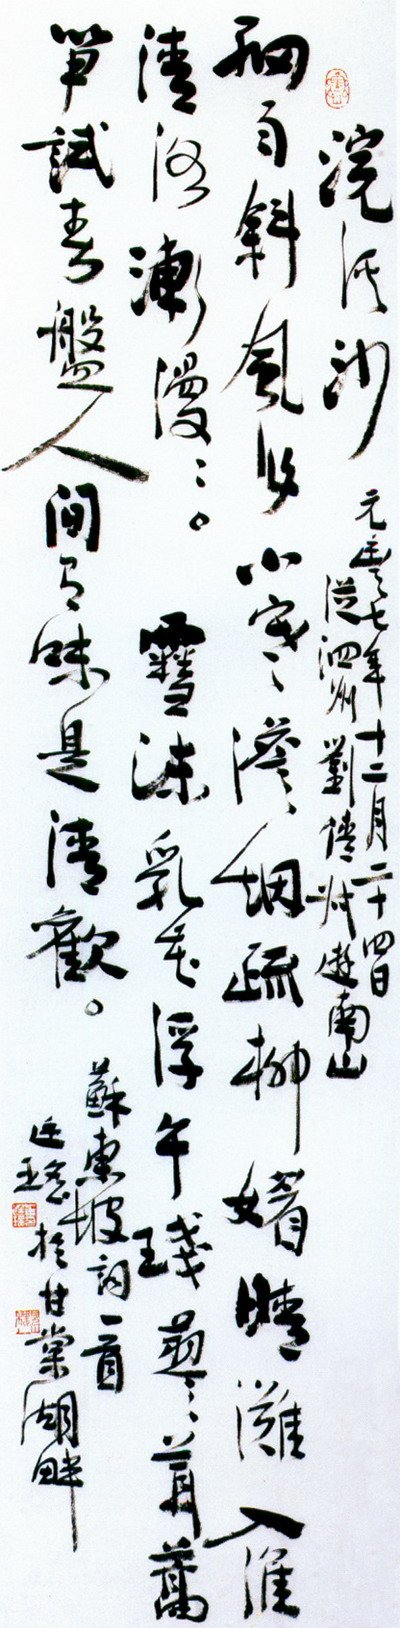 浣溪沙
元豐七年十二月二十四日
從泗州劉倩叔遊南山
細雨斜風作小寒淡烟疏柳媚晴灘入淮
清洛漸漫々。雪沫乳花浮午琖蓼茸蒿
筍試春盤人間有味是清歡。
蘇東坡詞一首
於甘棠湖畔